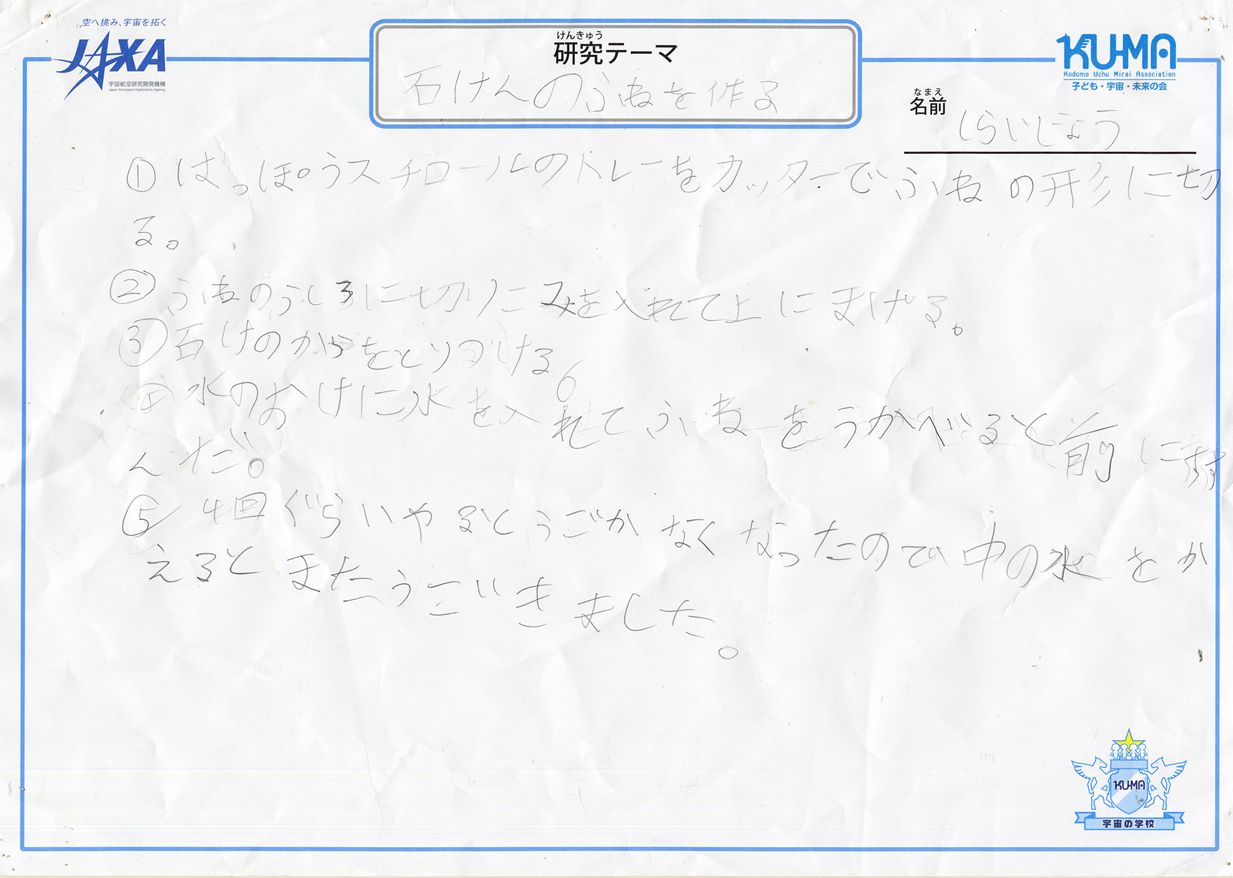 空へ挑み、宇宙を拓く
JAXA
宇宙航空研究開発機構
Japan Aerospace Exploration Agency
けんきゅう
研究テーマ
石けんのふねを作る
KU-MA
Kodomo Uchu Mirai Association
子ども・宇宙・未来の会
なまえ
名前
しらいしょう
①はっぽうスチロールのトレーをカッターでふねの形に切
る。
②ふねのうしろに切りこみを入れて上にまげる。
③石けのかけらをとりつける。
④水のおけに水を入れてふねをうかべると前にすす
んだ。
⑤4回ぐらいやるとうごかなくなったので中の水をか
えるとまたうごいきました。
KU-MA
宇宙の学校